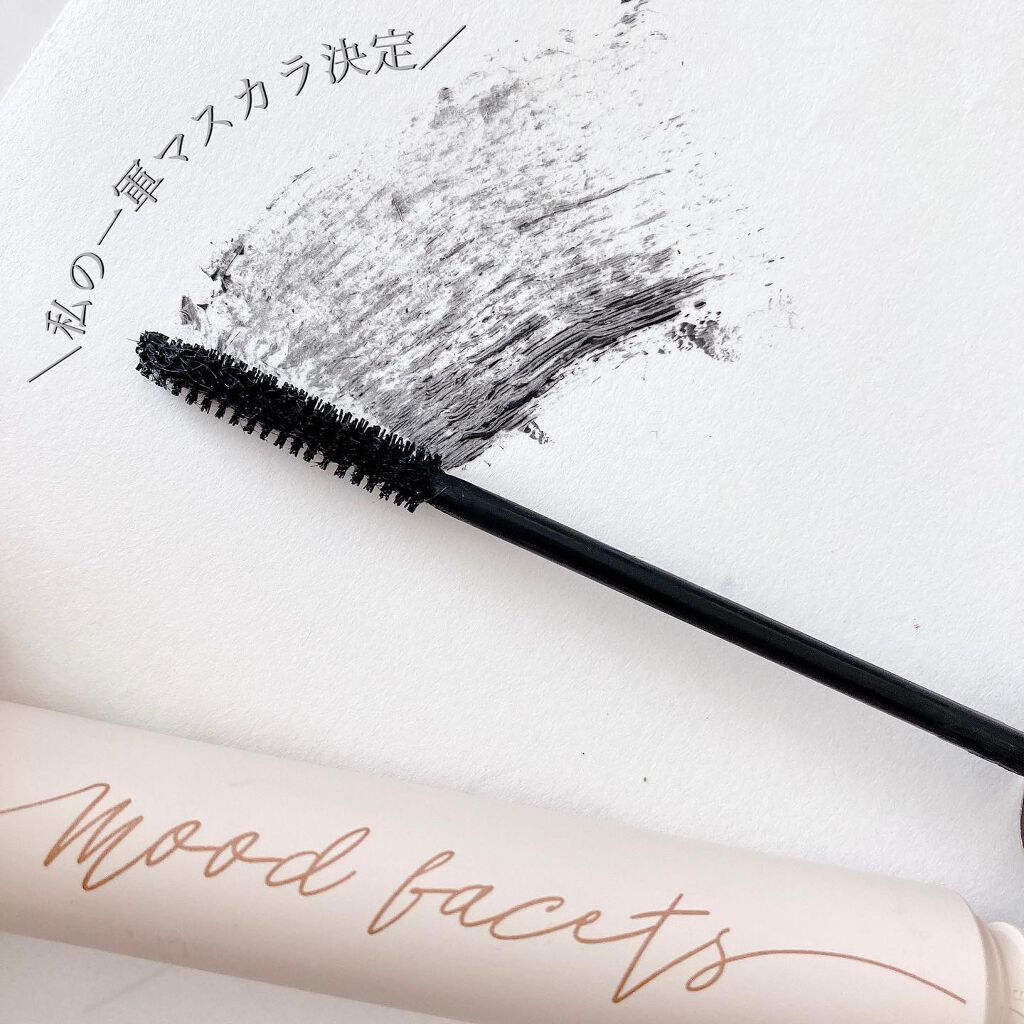 \私の一軍マスカラ決定/
mood facets